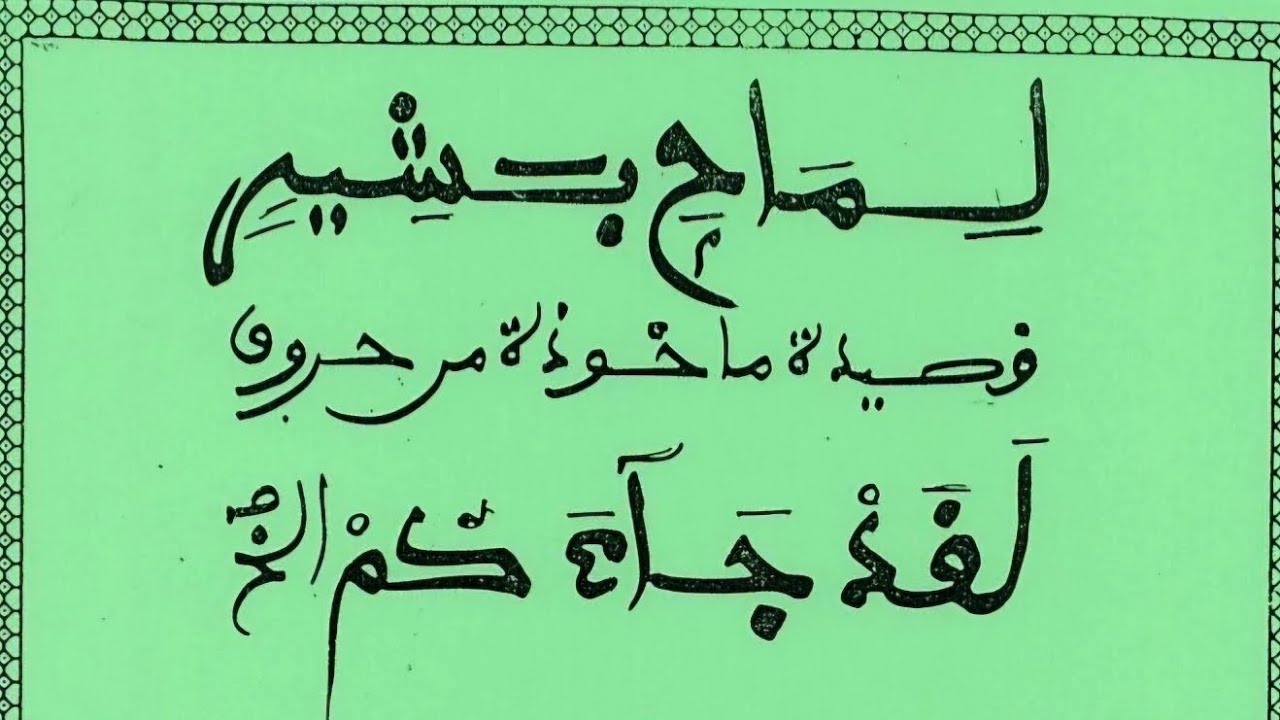 لِمَاحِ بَشِيرٍ
قصيدة ماخوذة من حروف
لَقَدْ جَآءَكُمْ الخ